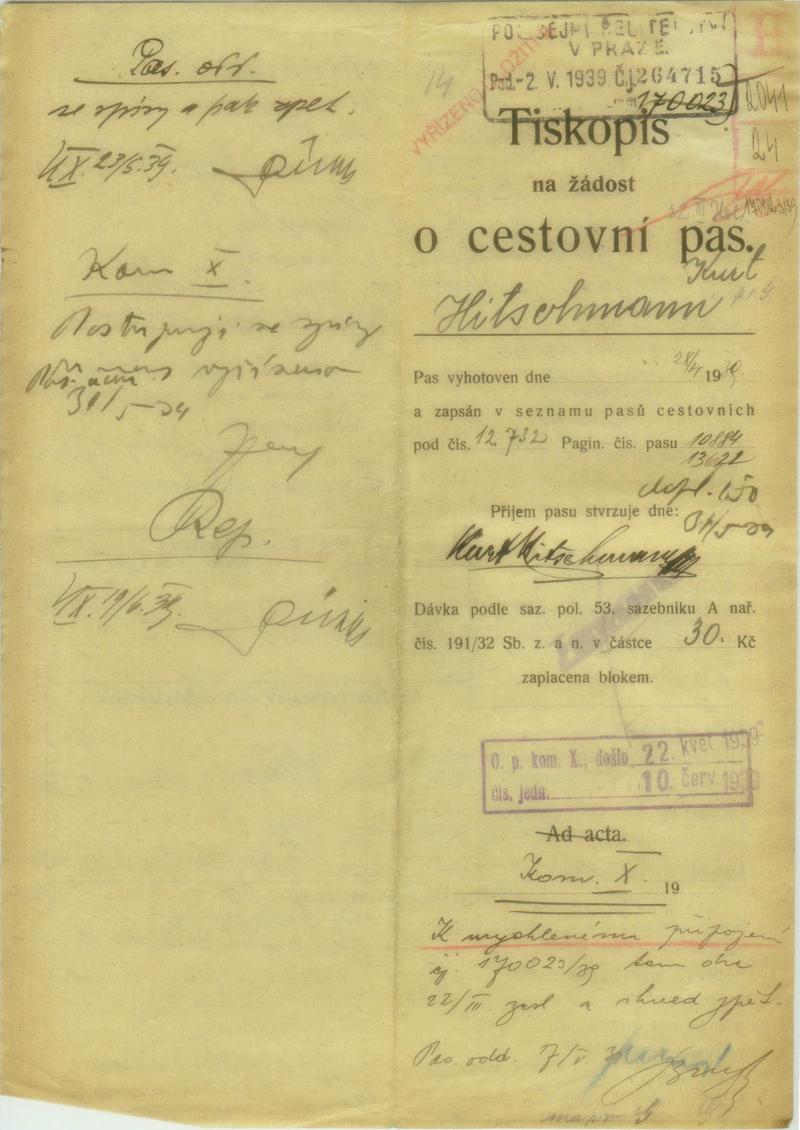 Pas. odd.
se zprávy a pak zpět.
X. 23/5. 39.
Kom X.
Postupuji se zprávy
31/5-39
Rep.
X. 19/6. 39.
14
V PRAZE.
Pod.-2. V. 1939 Čj. 264715
170023
VYŘÍZENO
2041
24
Tiskopis
na žádost
170023/39
o cestovní pas.
Kurt
Hitschmann
Pas vyhotoven dne 28/4 1939.
a zapsán v seznamu pasů cestovních
pod čís. 12.732 Pagin. čís. pasu 10884
13622
dopl. 150
Příjem pasu stvrzuje dne: 31/5-39
Kurt Hitschmann
Dávka podle saz. pol. 53, sazebníku A nař.
čís. 191/32 Sb. z. a n. v částce 30. Kč
zaplacena blokem.
O. p. kom. X., došlo 22. květ 1939
čís. jedn. 10. červ 1939
Ad acta.
Kom. X. 19
K urychlenému připojení
čj. 170023/39 tam dne
22/III. zasl a ihned zpět.
Pas. odd. 7/V 39